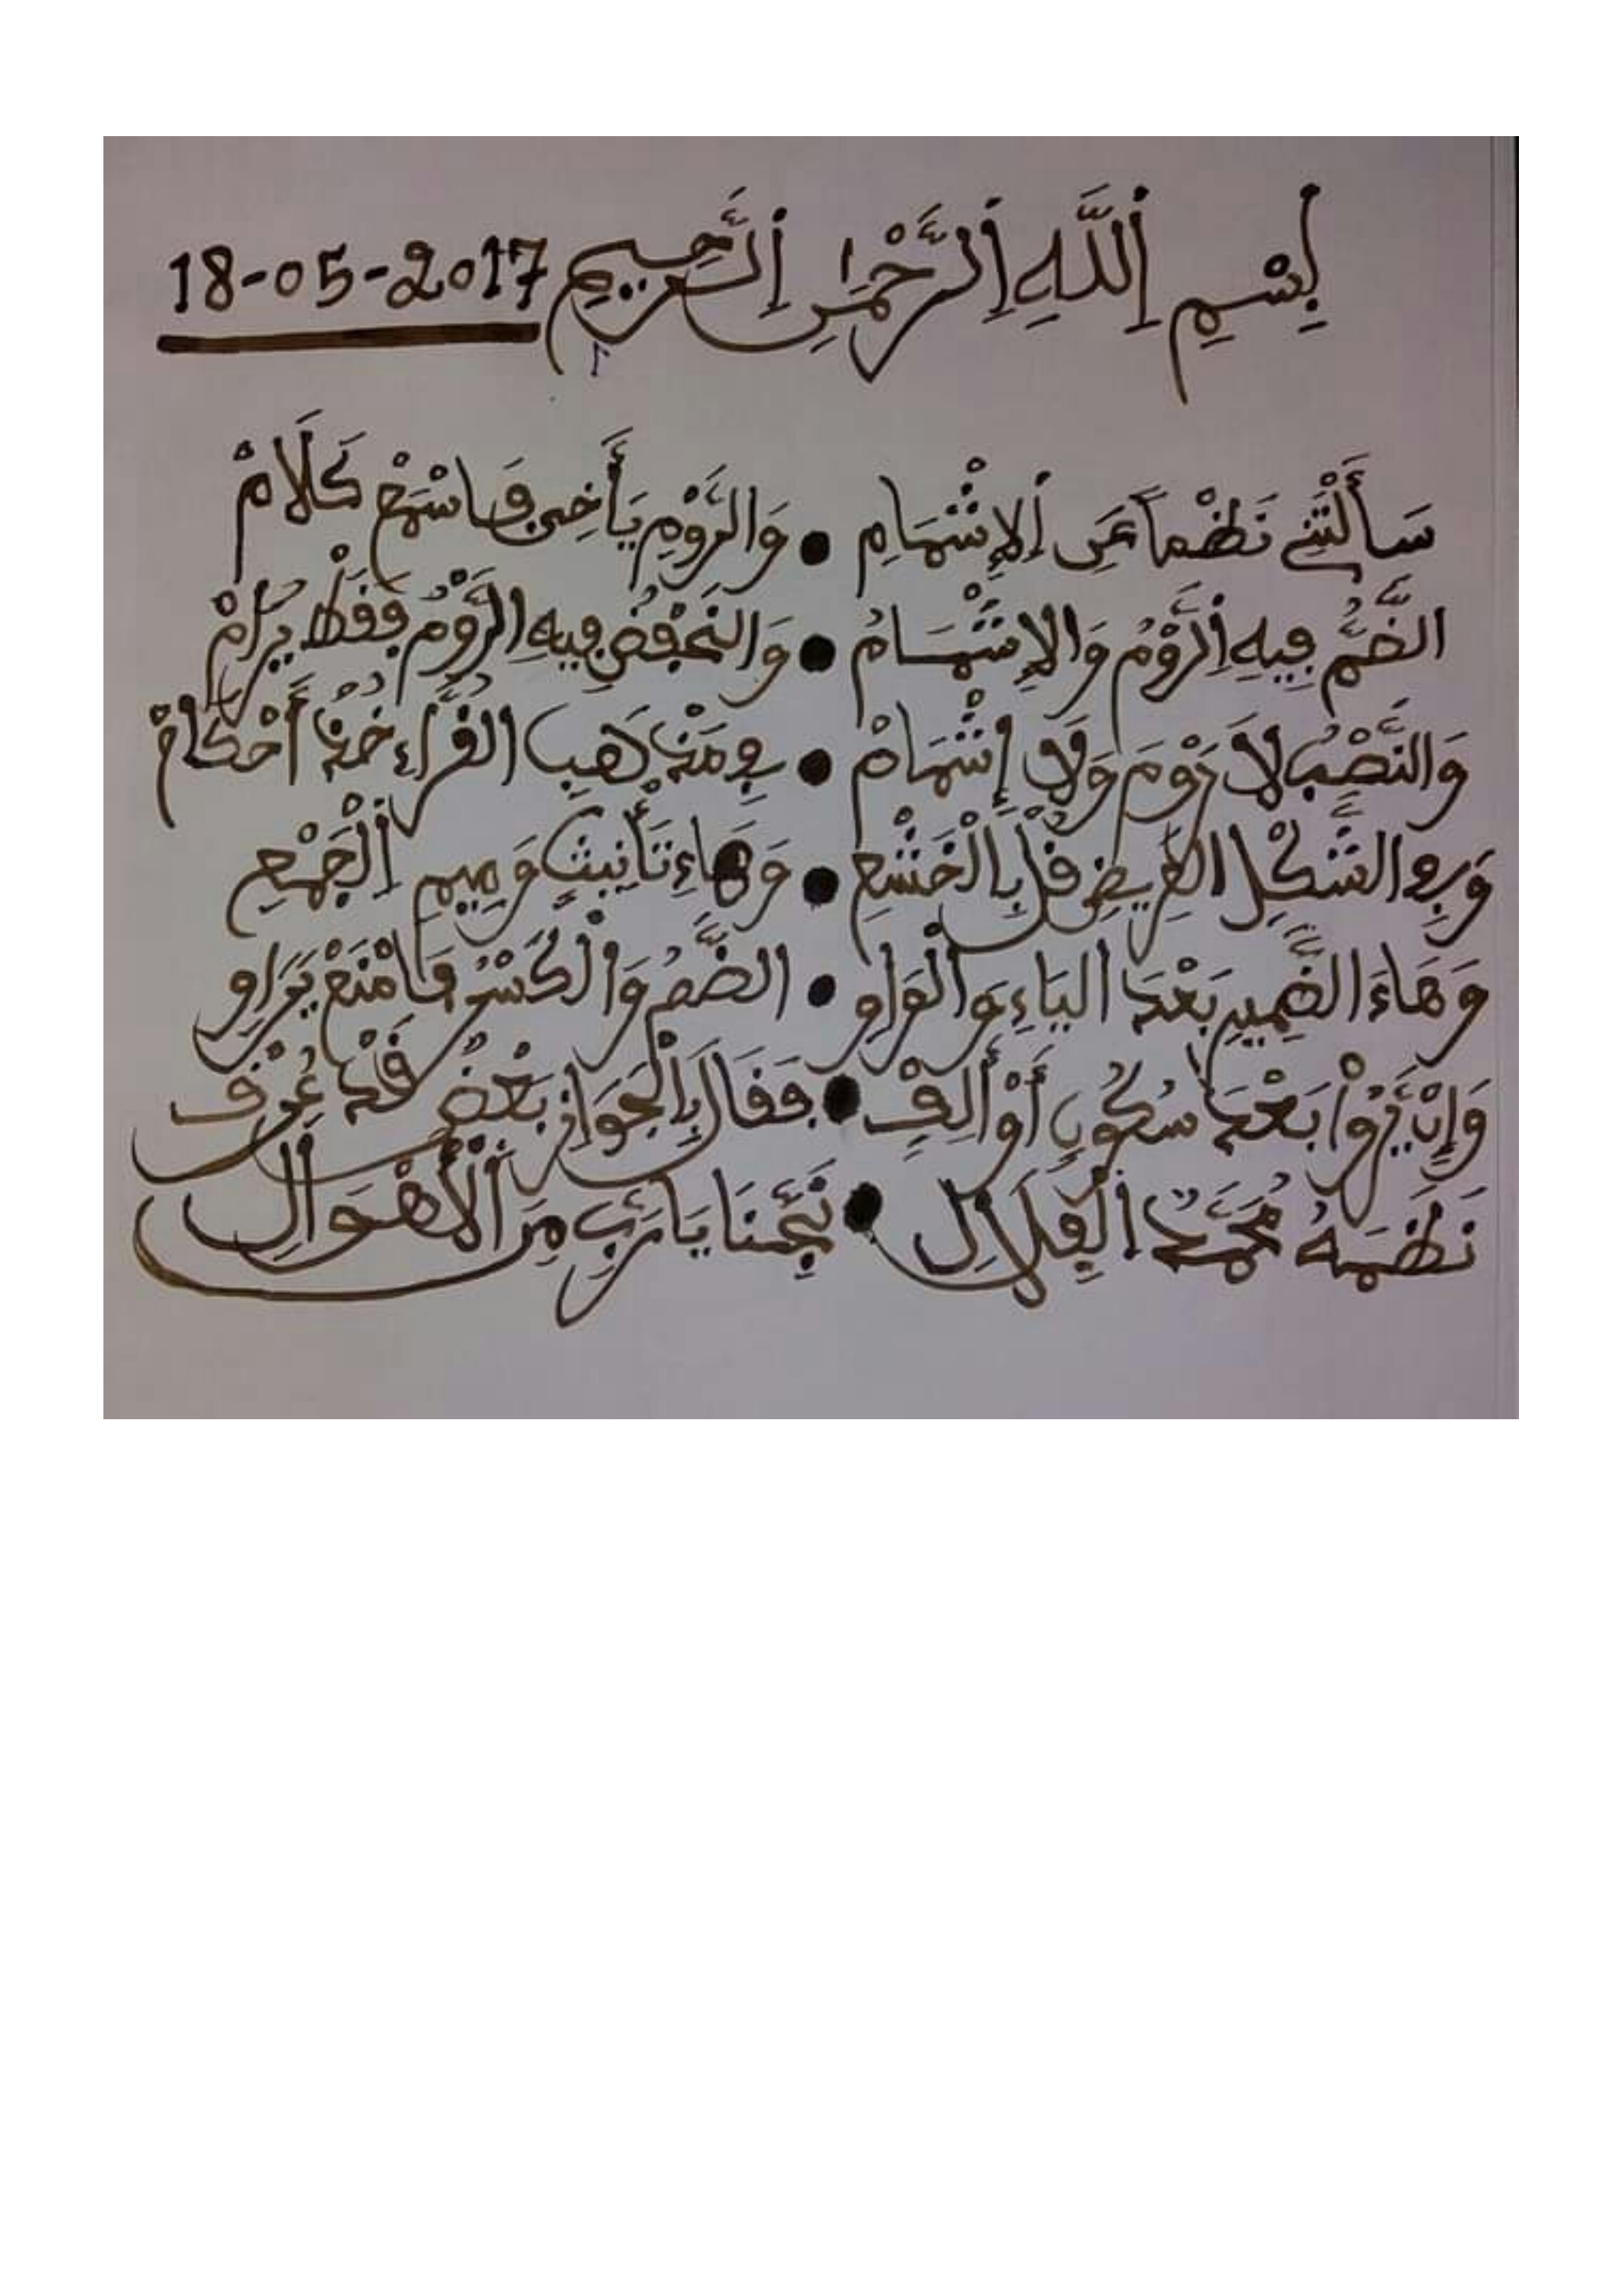 بِسْمِ اللَّهِ الرَّحْمَٰنِ الرَّحِيمِ 18-05-2017
سَأَلْتَنِي نَظْماً عَنِ الإِشْمَامِ • وَالرَّوْمِ يَا أَخِي فَاسْمَعْ كَلَامْ
الضَّمُّ فِيهِ الرَّوْمُ وَالإِشْمَامُ • وَالخَفْضُ فِيهِ الرَّوْمُ فَقَطْ يُرَامْ
وَالنَّصْبُ لَا رَوْمَ وَلَا إِشْمَامْ • فِي مَذْهَبِ القُرَّاءِ خُذْ أَحْكَامْ
وَفِي الشَّكْلِ العَرِيضِ قُلْ بِالْخَشْعِ • وَهَاءِ تَأْنِيثٍ وَمِيمِ الْجَمْعِ
وَهَاءَ الضَّمِيرِ بَعْدَ اليَاءِ وَالْوَاوِ • الضَّمُّ وَالْكَسْرُ فَامْنَعْ يَرَاوِ
وَإِنْ يَرَوْا بَعْدَ سُكُونٍ أَوْ أَلِفْ • فَقَالَ بِالْجَوَازِ بَعْضٌ قَدْ عُرِفْ
نَظَمَهُ مُحَمَّدٌ الْفِلَالِي • نَجِّنَا يَا رَبِّ مِنَ الْأَهْوَالِ